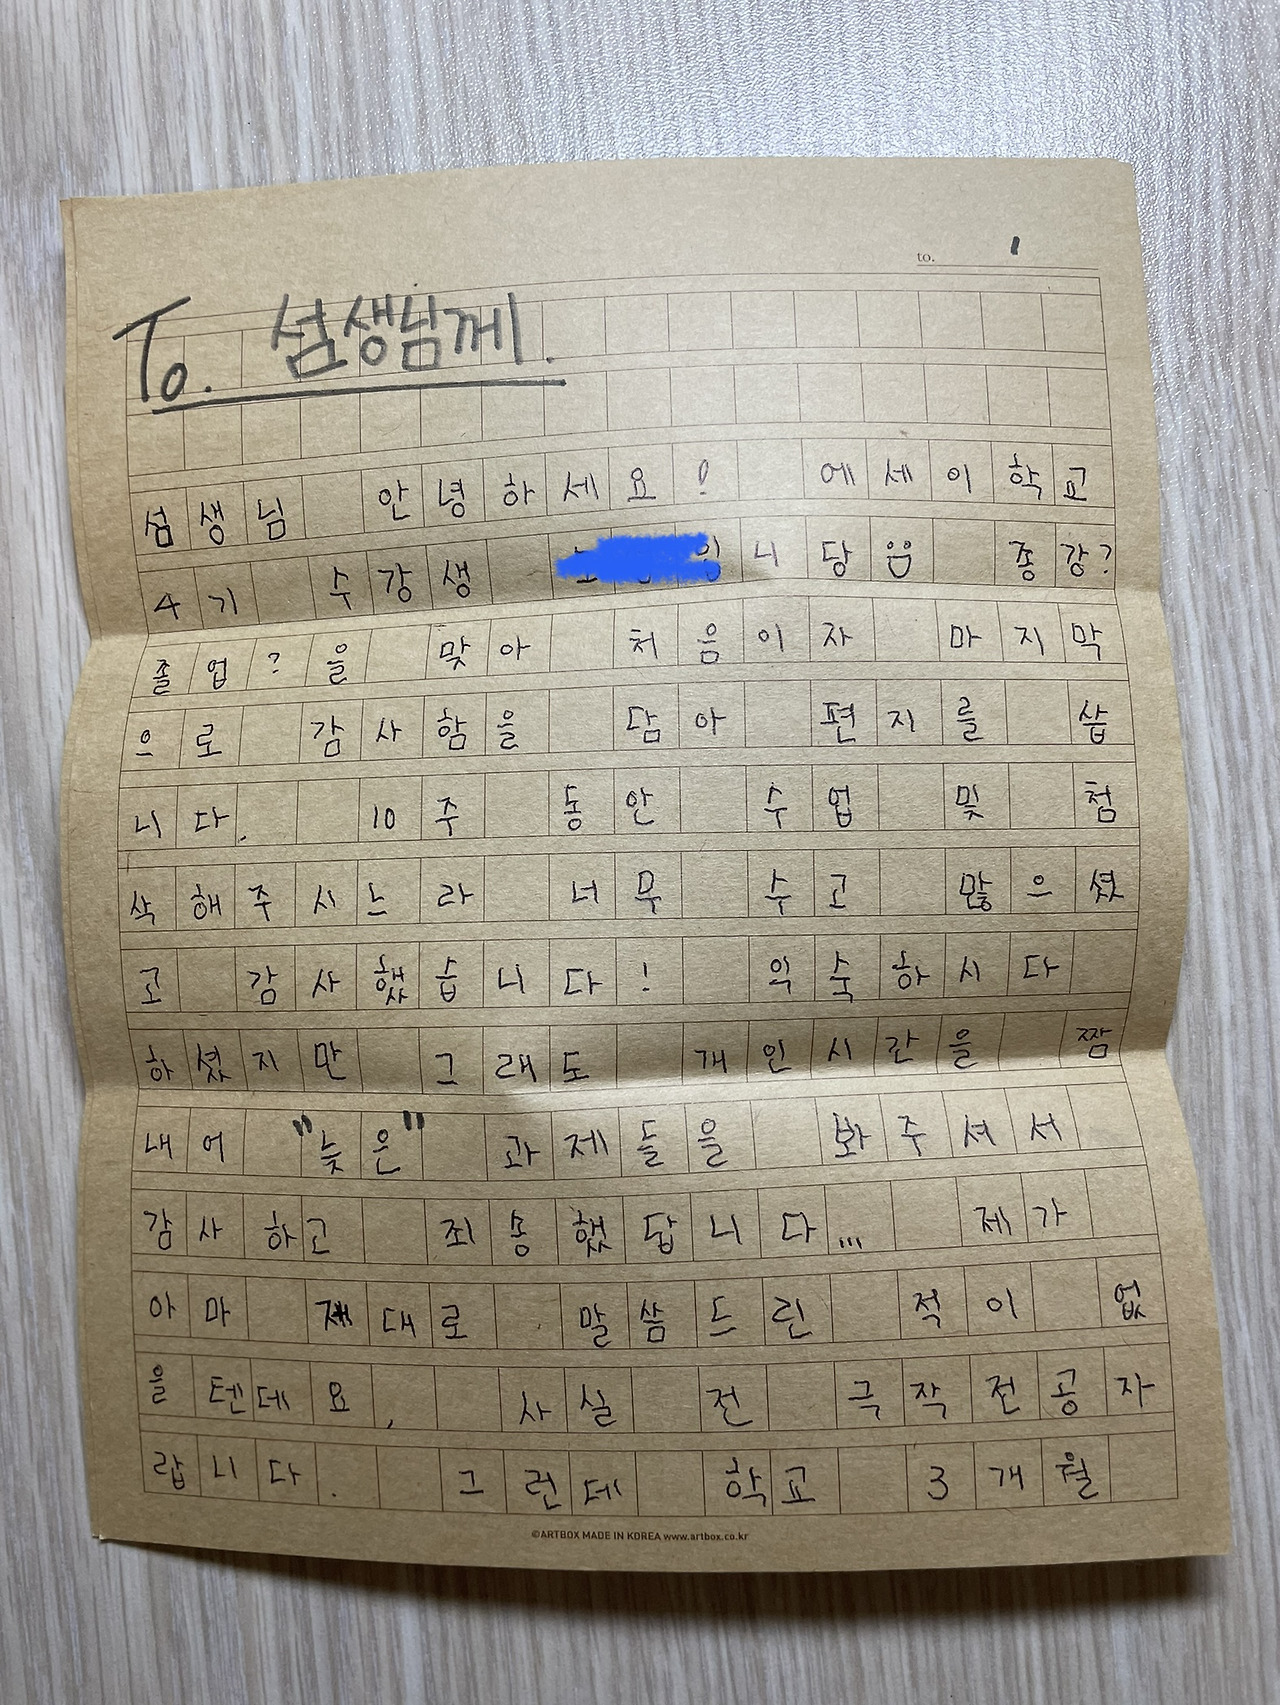 to. 1
To. 섬생님께.
섬생님 안녕하세요! 에세이학교
4기 수강생 입니당 종강?
졸업?을 맞아 처음이자 마지막
으로 감사함을 담아 편지를 씁
니다. 10주 동안 수업 및 첨
삭해주시느라 너무 수고 많으셨
고 감사했습니다! 익숙하시다
하셨지만 그래도 개인시간을 짬
내어 "늦은" 과제들을 봐주셔서
감사하고 죄송했답니다... 제가
아마 제대로 말씀드린 적이 없
을텐데요, 사실 전 극작전공자
랍니다. 그런데 학교 3개월
©ARTBOX MADE IN KOREA www.artbox.co.kr